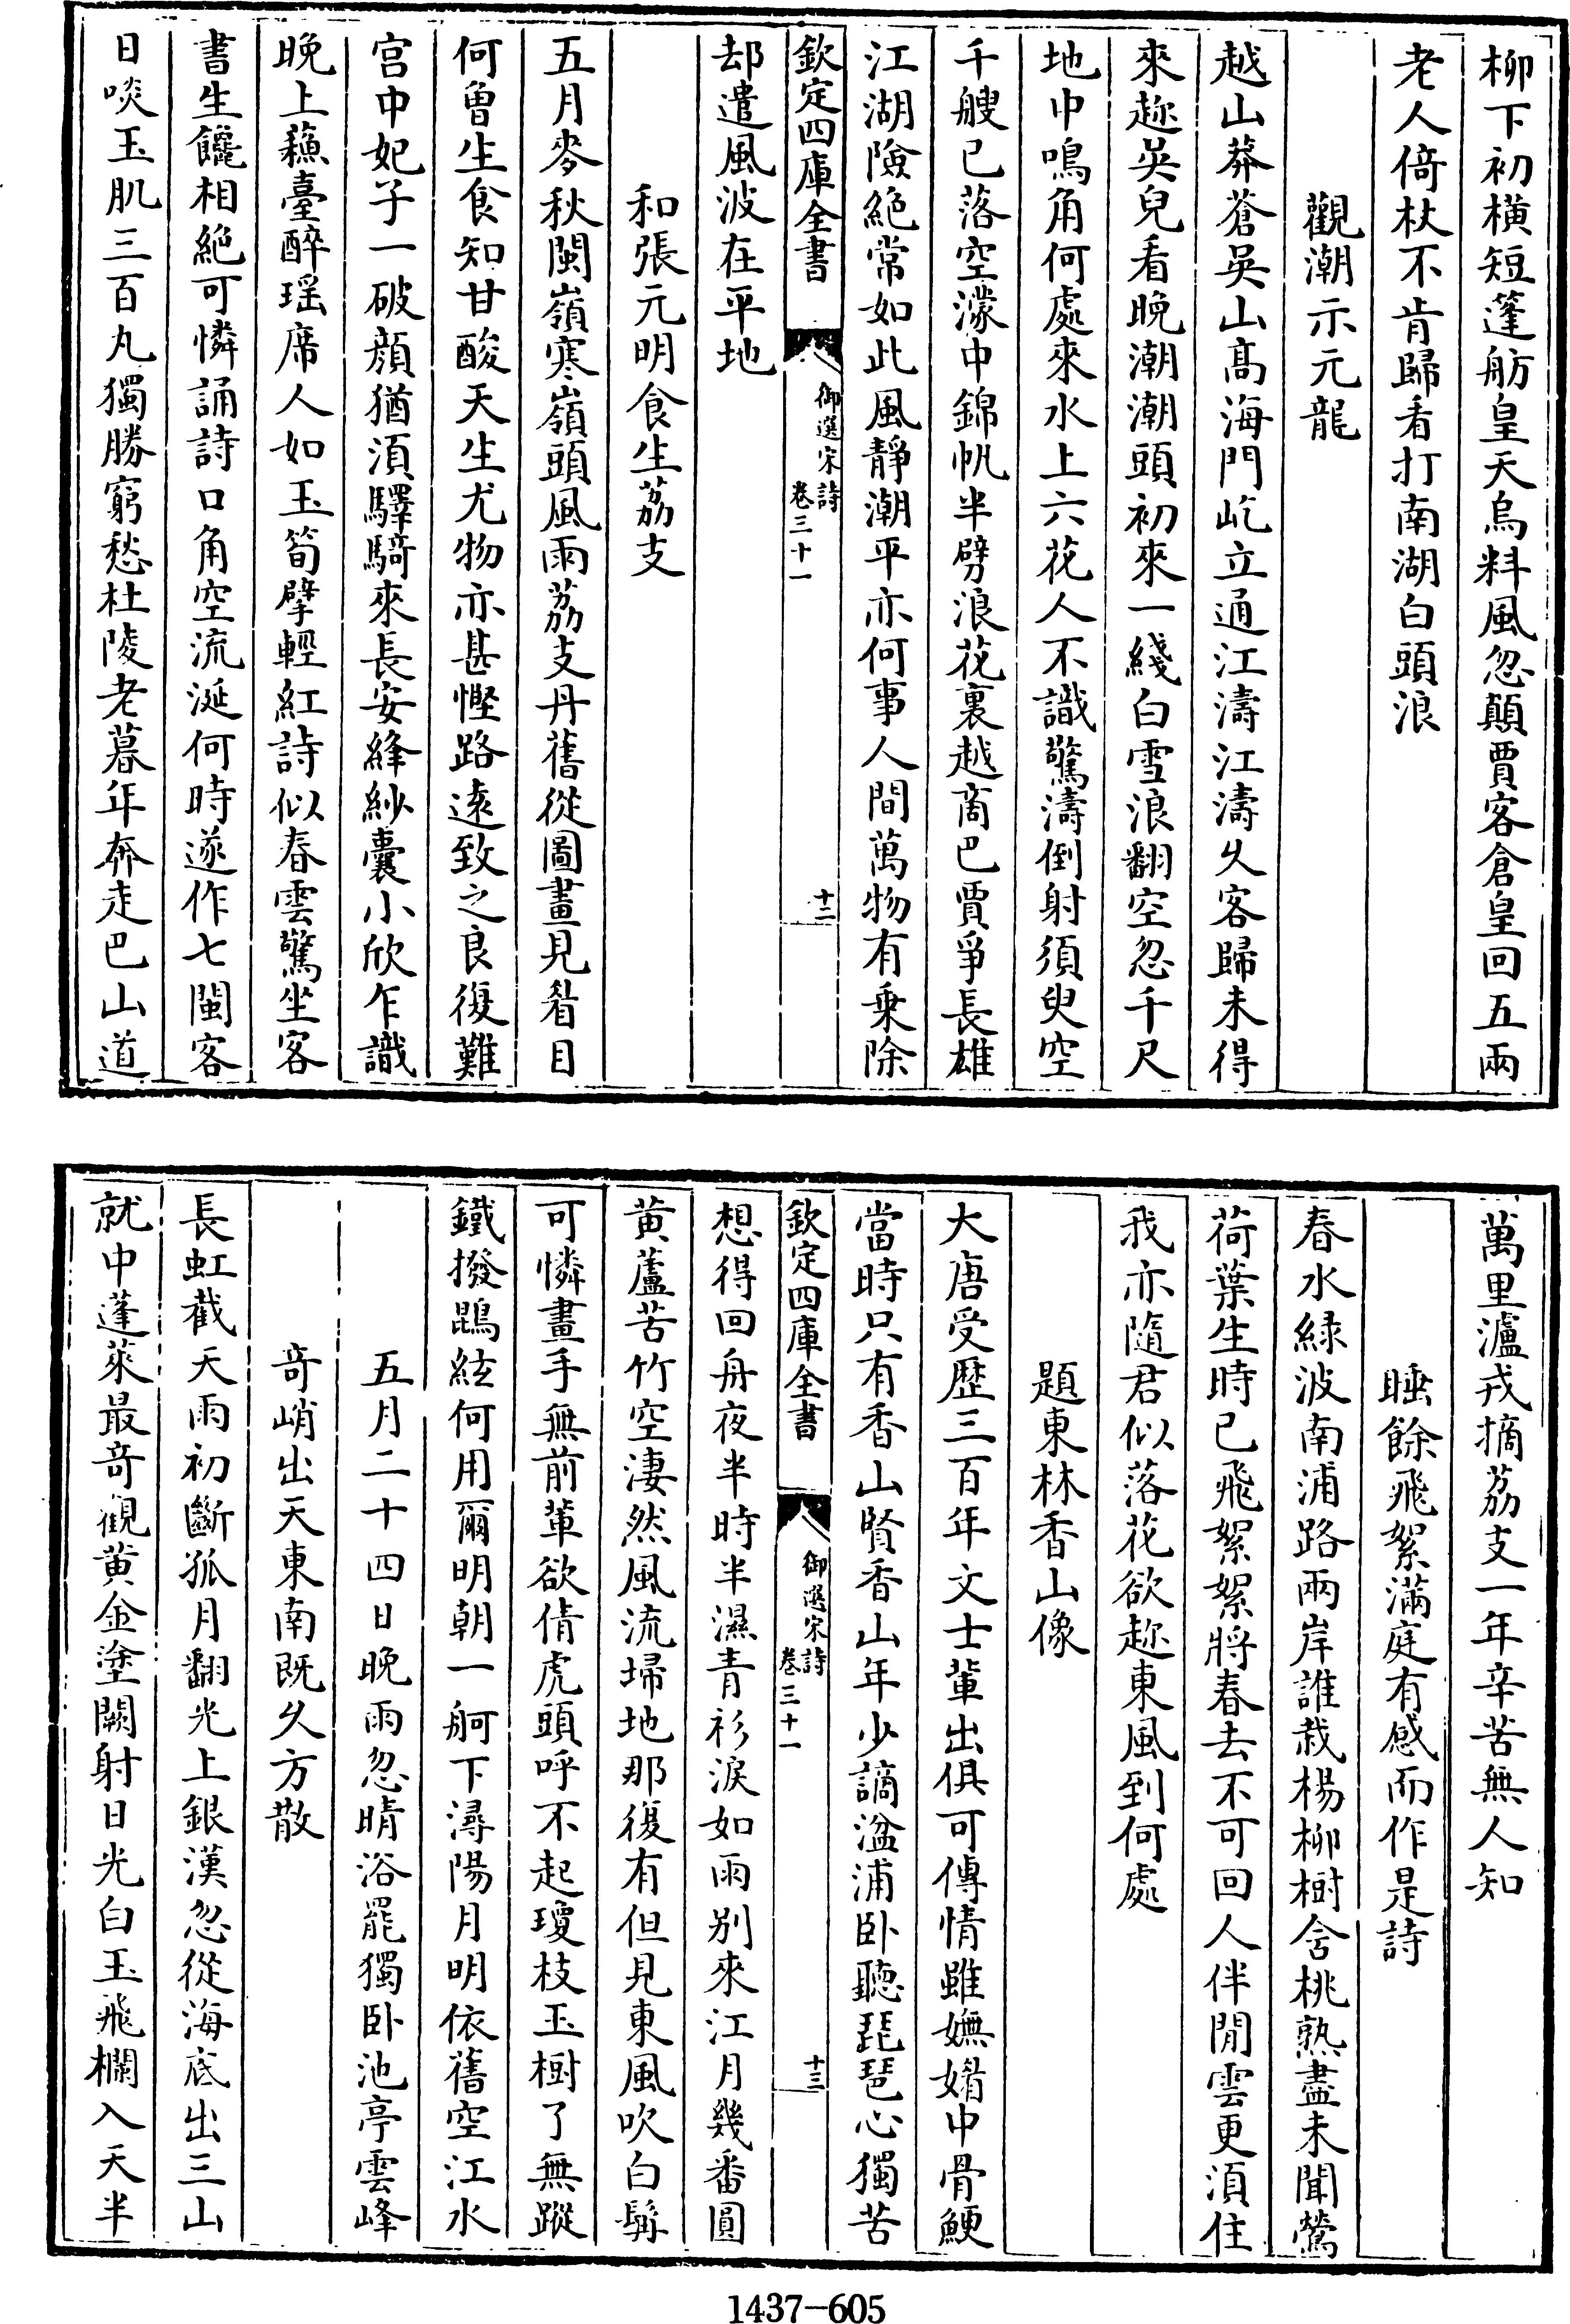 柳下初横短篷舫皇天烏料風忽顛賈客倉皇回五兩
老人倚杖不肯歸看打南湖白頭浪
觀潮示元龍
越山莽蒼吳山髙海門屹立通江濤江濤久客歸未得
來趂吳兒看晩潮潮頭初來一綫白雪浪翻空忽千尺
地中鳴角何處來水上六花人不識驚濤倒射須臾空
千艘已落空濛中錦帆半劈浪花裏越商巴賈爭長雄
江湖險絶常如此風靜潮平亦何事人間萬物有乗除
欽定四庫全書
御選宋詩
卷三十一
十二
却遣風波在平地
和張元明食生荔支
五月麥秋閩嶺寒嶺頭風雨荔支丹舊從圖畫見眉目
何曾生食知甘酸天生尤物亦甚慳路逺致之良復難
宫中妃子一破顔猶須驛騎來長安絳紗囊小欣乍識
晩上蘓臺醉瑶席人如玉筍擘輕紅詩似春雲驚坐客
書生饞相絶可憐誦詩口角空流涎何時遂作七閩客
日啖玉肌三百丸獨勝窮愁杜陵老暮年奔走巴山道
萬里瀘戎摘荔支一年辛苦無人知
睡餘飛絮滿庭有感而作是詩
春水緑波南浦路兩岸誰栽楊柳樹含桃熟盡未聞鶯
荷葉生時已飛絮絮將春去不可回人伴閒雲更須住
我亦隨君似落花欲趂東風到何處
題東林香山像
大唐受歴三百年文士輩出俱可傳情雖嫵媚中骨鯁
當時只有香山賢香山年少謫湓浦卧聽琵琶心獨苦
欽定四庫全書
御選宋詩
卷三十一
十三
想得回舟夜半時半濕青衫淚如雨别來江月幾番圓
黄蘆苦竹空淒然風流埽地那復有但見東風吹白髯
可憐畫手無前輩欲倩虎頭呼不起瓊枝玉樹了無蹤
鐵撥鵾絃何用爾明朝一舸下潯陽月明依舊空江水
五月二十四日晩雨忽晴浴罷獨卧池亭雲峰
竒峭出天東南既久方散
長虹截天雨初斷孤月翻光上銀漢忽從海底出三山
就中蓬萊最竒觀黄金塗闕射日光白玉飛欄入天半
1437-605